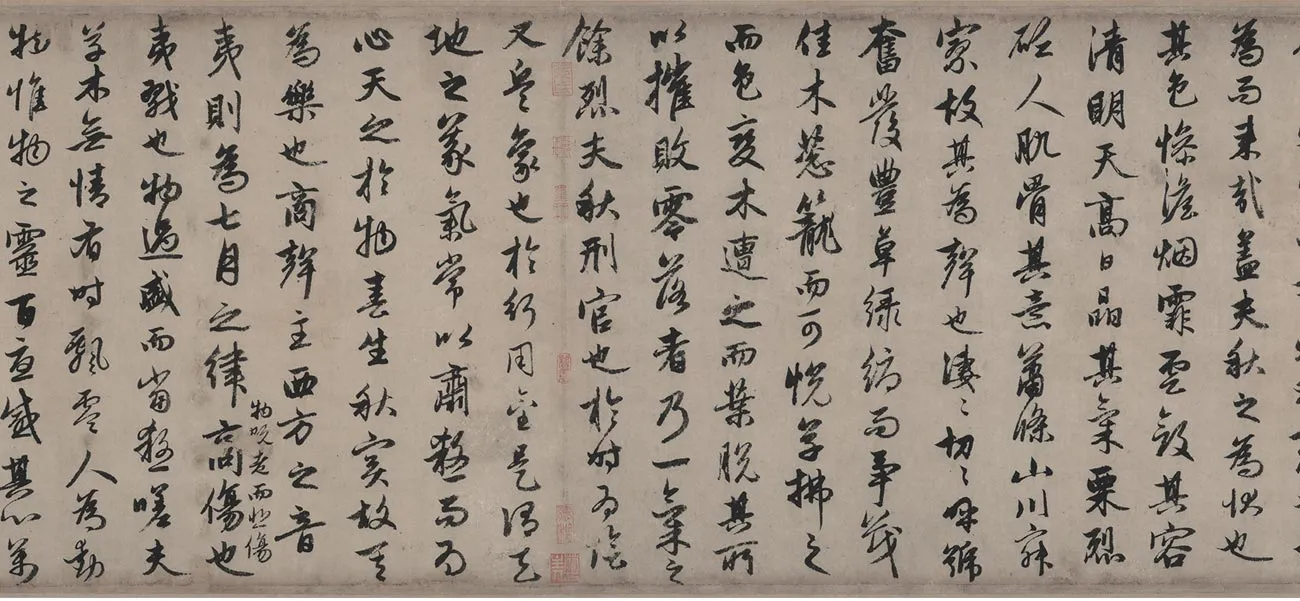 為而来哉盖夫秋之為状也
其色惨澹烟霏雲斂其容
清明天高日晶其氣栗烈
砭人肌骨其意蕭條山川寂
寥故其為聲也淒〻切〻呼號
奮發豐草緑縟而爭茂
佳木葱籠而可悦草拂之
而色變木遭之而葉脱其所
以摧敗零落者乃一氣之
餘烈夫秋刑官也於時為陰
又兵象也於行用金是謂天
地之義氣常以肅殺而為
心天之於物春生秋實故其
為樂也商聲主西方之音
夷則為七月之律商傷也
物既老而悲傷
夷戮也物過盛而當殺嗟夫
草木無情有時飄零人為動
物惟物之靈百憂感其心萬